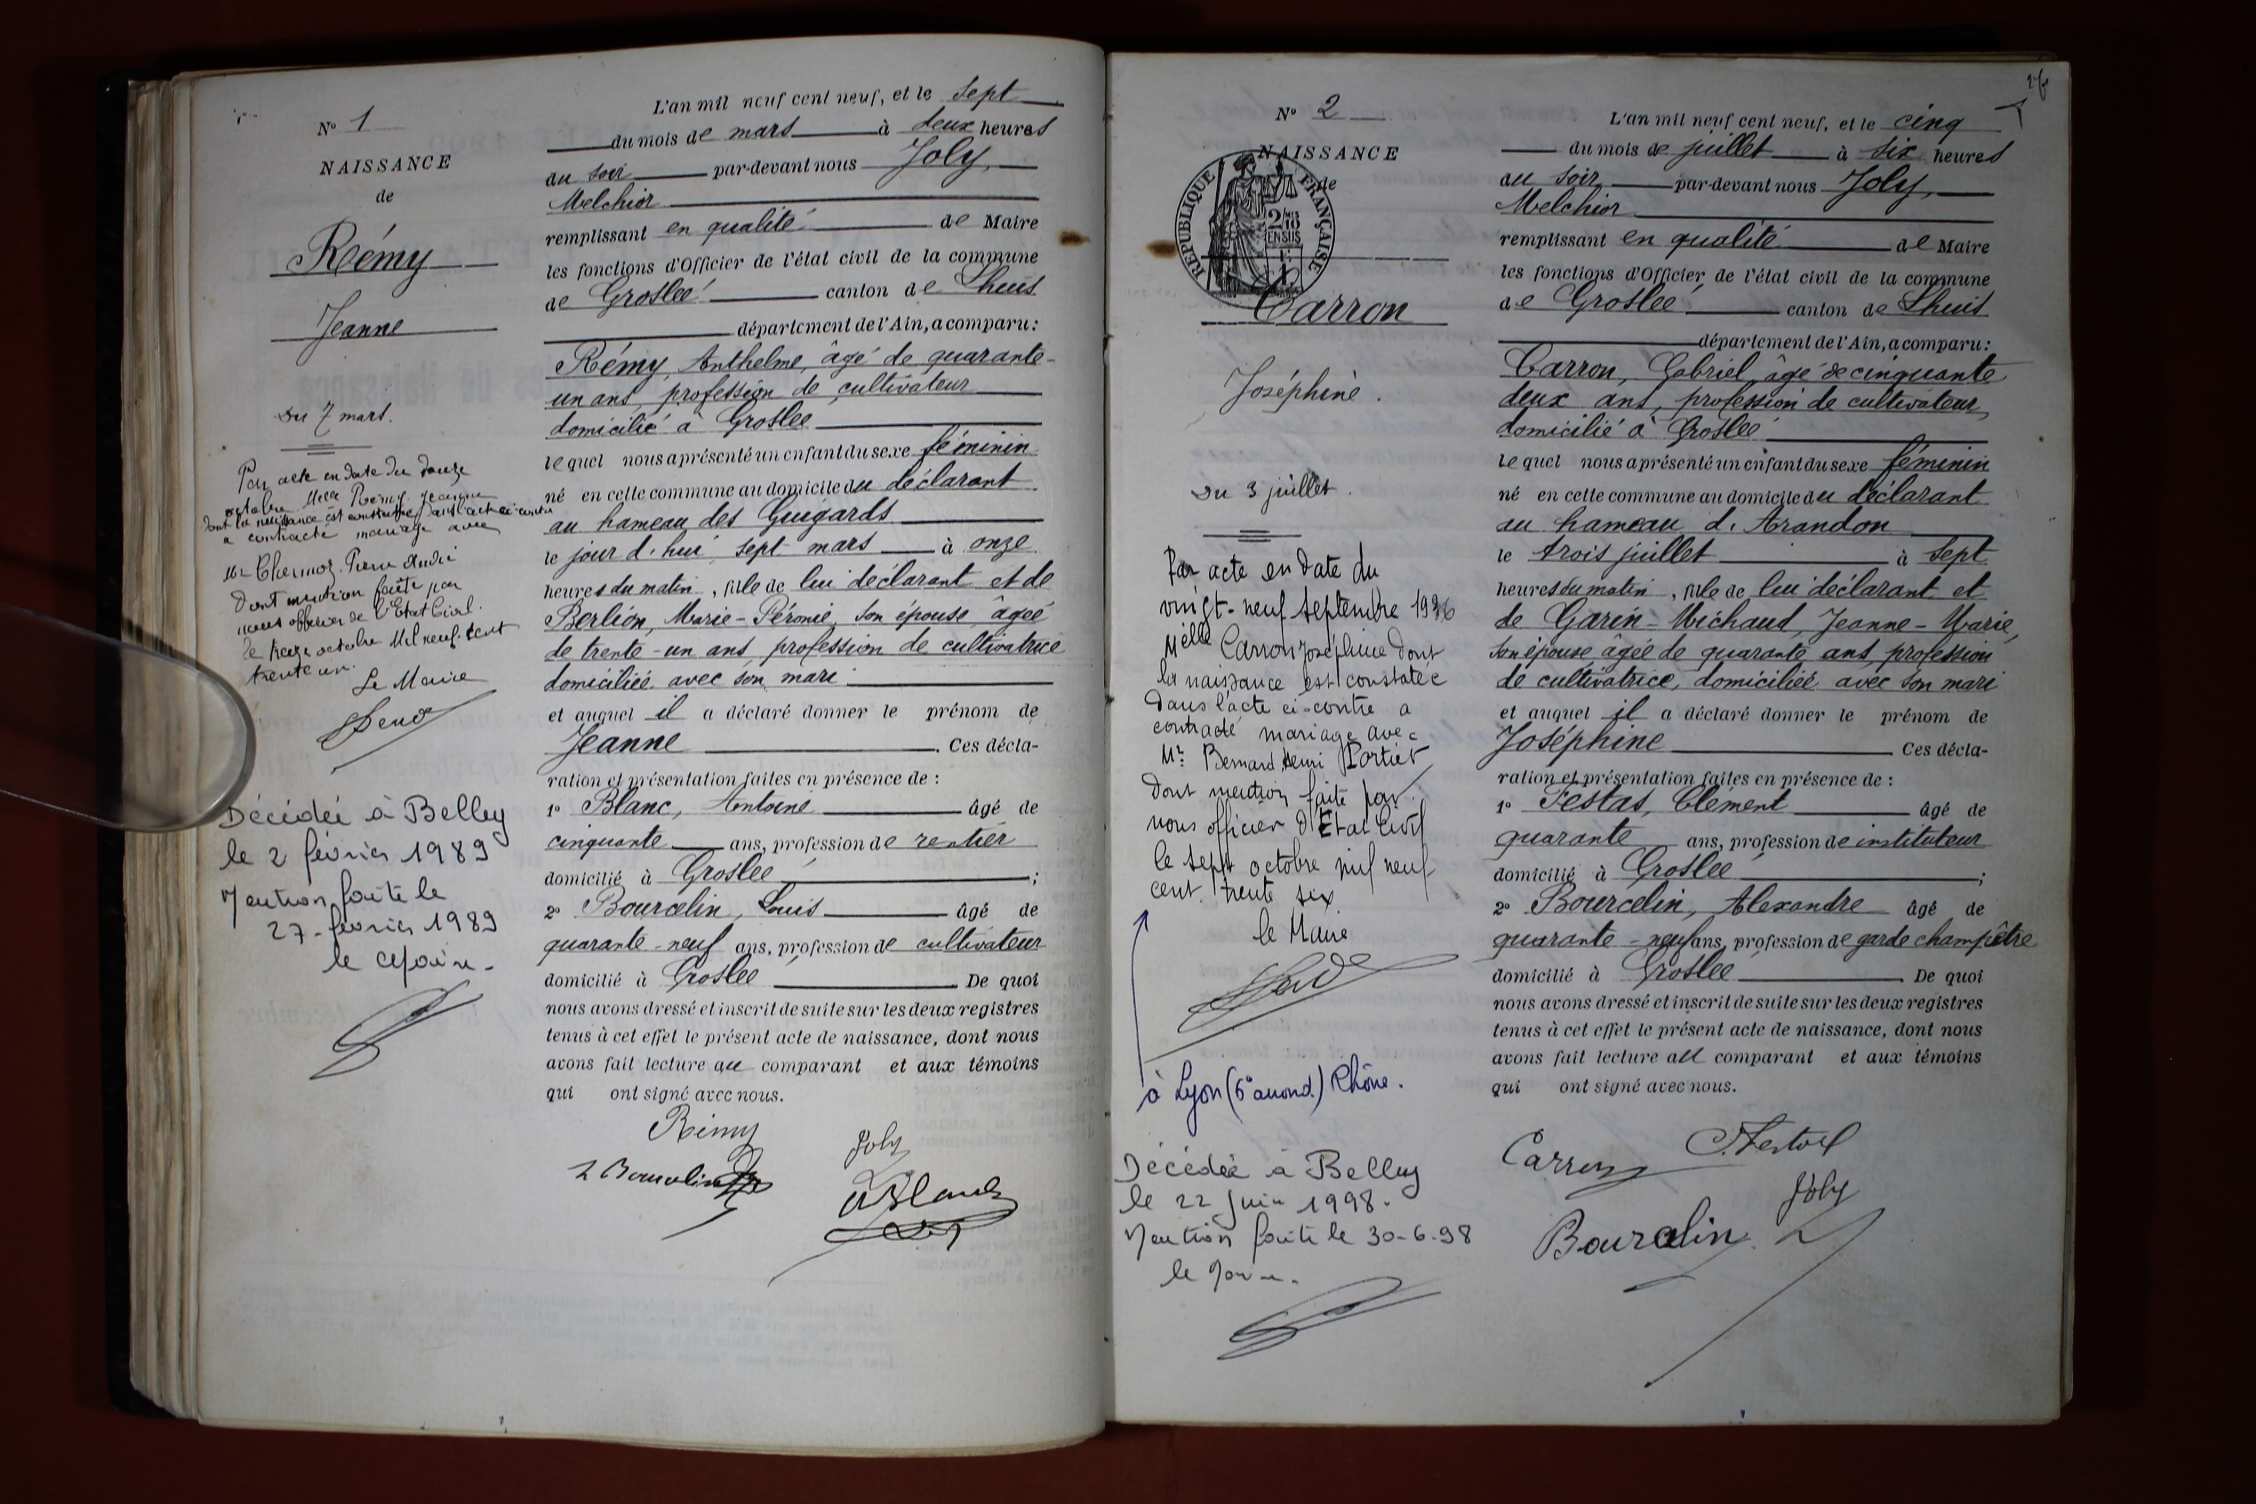 N° 1
NAISSANCE
de
Rémy
Jeanne
Du 7 mars.
Par acte en date du douze
octobre Melle Rémy Jeanne
dont la naissance est constatée dans l'acte ci-contre
a contracté mariage avec
Mr Chermoz Pierre André
Dont mention faite par
nous officier de l'Etat Civil.
le treize octobre Mil neuf cent
trente un.
Le Maire
Décédée à Belley
le 2 février 1989
Mention faite le
27 février 1989
le Maire
L'an mil neuf cent neuf, et le sept
du mois de mars à deux heures
du soir par-devant nous Joly,
Melchior
remplissant en qualité de Maire
les fonctions d'Officier de l'état civil de la commune
de Groslée canton de Lhuis
département de l'Ain, a comparu :
Rémy, Anthelme, âgé de quarante-
un ans, profession de cultivateur
domicilié à Groslée
lequel nous a présenté un enfant du sexe féminin
né en cette commune au domicile du déclarant
au hameau des Guigards
le jour d'hui sept mars à onze
heures du matin, fille de lui déclarant et de
Berlion, Marie-Péronie, son épouse, âgée
de trente-un ans, profession de cultivatrice
domiciliée avec son mari
et auquel il a déclaré donner le prénom de
Jeanne. Ces décla-
ration et présentation faites en présence de :
1° Blanc, Antoine âgé de
cinquante ans, profession de rentier
domicilié à Groslée ;
2° Bourcelin, Louis âgé de
quarante-neuf ans, profession de cultivateur
domicilié à Groslée De quoi
nous avons dressé et inscrit de suite sur les deux registres
tenus à cet effet le présent acte de naissance, dont nous
avons fait lecture au comparant et aux témoins
qui ont signé avec nous.
Rémy
Joly
L Bourcelin
A Blanc
26
N° 2
NAISSANCE
de
REPUBLIQUE FRANÇAISE
2/10 EN SUS
Carron
Joséphine.
Du 3 juillet.
Par acte en date du
vingt-neuf septembre 1936
Melle Carron Joséphine dont
la naissance est constatée
dans l'acte ci-contre a
contracté mariage avec
Mr. Bernard Henri Portier
dont mention faite par
nous officier d'Etat Civil
le sept octobre mil neuf
cent trente six.
le Maire
à Lyon (6° arrond.) Rhône.
Décédée à Belley
le 22 juin 1998.
Mention faite le 30-6-98
le Maire.
L'an mil neuf cent neuf, et le cinq
du mois de juillet à six heures
du soir par-devant nous Joly,
Melchior
remplissant en qualité de Maire
les fonctions d'Officier de l'état civil de la commune
de Groslée canton de Lhuis
département de l'Ain, a comparu :
Carron, Gabriel, âgé de cinquante
deux ans, profession de cultivateur,
domicilié à Groslée
lequel nous a présenté un enfant du sexe féminin
né en cette commune au domicile du déclarant
au hameau d'Arandon
le trois juillet à sept
heures du matin, fille de lui déclarant et
de Garin-Michaud, Jeanne-Marie,
son épouse, âgée de quarante ans, profession
de cultivatrice, domiciliée avec son mari
et auquel il a déclaré donner le prénom de
Joséphine Ces décla-
ration et présentation faites en présence de :
1° Festas, Clément âgé de
quarante ans, profession de instituteur
domicilié à Groslée ;
2° Bourcelin, Alexandre âgé de
quarante-neuf ans, profession de garde champêtre
domicilié à Groslée De quoi
nous avons dressé et inscrit de suite sur les deux registres
tenus à cet effet le présent acte de naissance, dont nous
avons fait lecture au comparant et aux témoins
qui ont signé avec nous.
Carron
C. Festas
Joly
Bourcelin